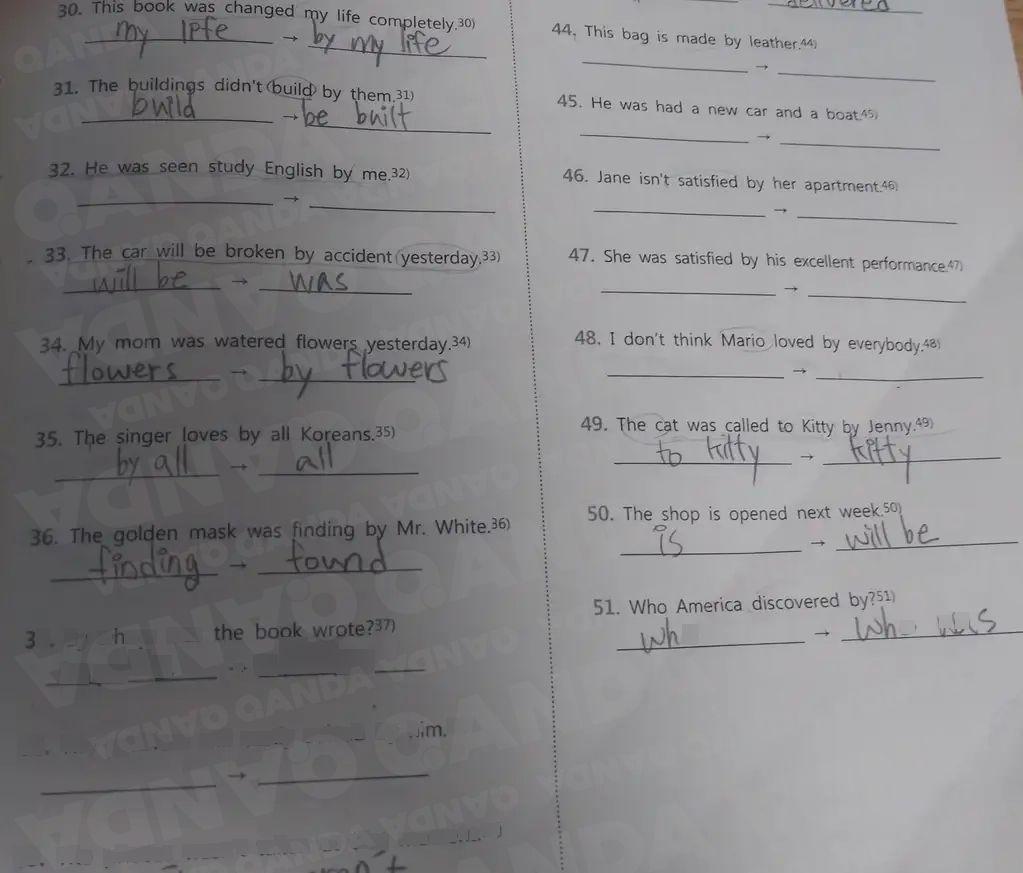 30. This book was changed my life completely.30)
my life → by my life
31. The buildings didn't build by them.31)
build → be built
32. He was seen study English by me.32)
→
33. The car will be broken by accident yesterday.33)
will be → was
34. My mom was watered flowers yesterday.34)
flowers → by flowers
35. The singer loves by all Koreans.35)
by all → all
36. The golden mask was finding by Mr. White.36)
finding → found
the book wrote?37)
→
delivered
44. This bag is made by leather.44)
→
45. He was had a new car and a boat.45)
→
46. Jane isn't satisfied by her apartment.46)
→
47. She was satisfied by his excellent performance.47)
→
48. I don't think Mario loved by everybody.48)
→
49. The cat was called to Kitty by Jenny.49)
to kitty → kitty
50. The shop is opened next week.50)
is → will be
51. Who America discovered by?51)
→
QANDA